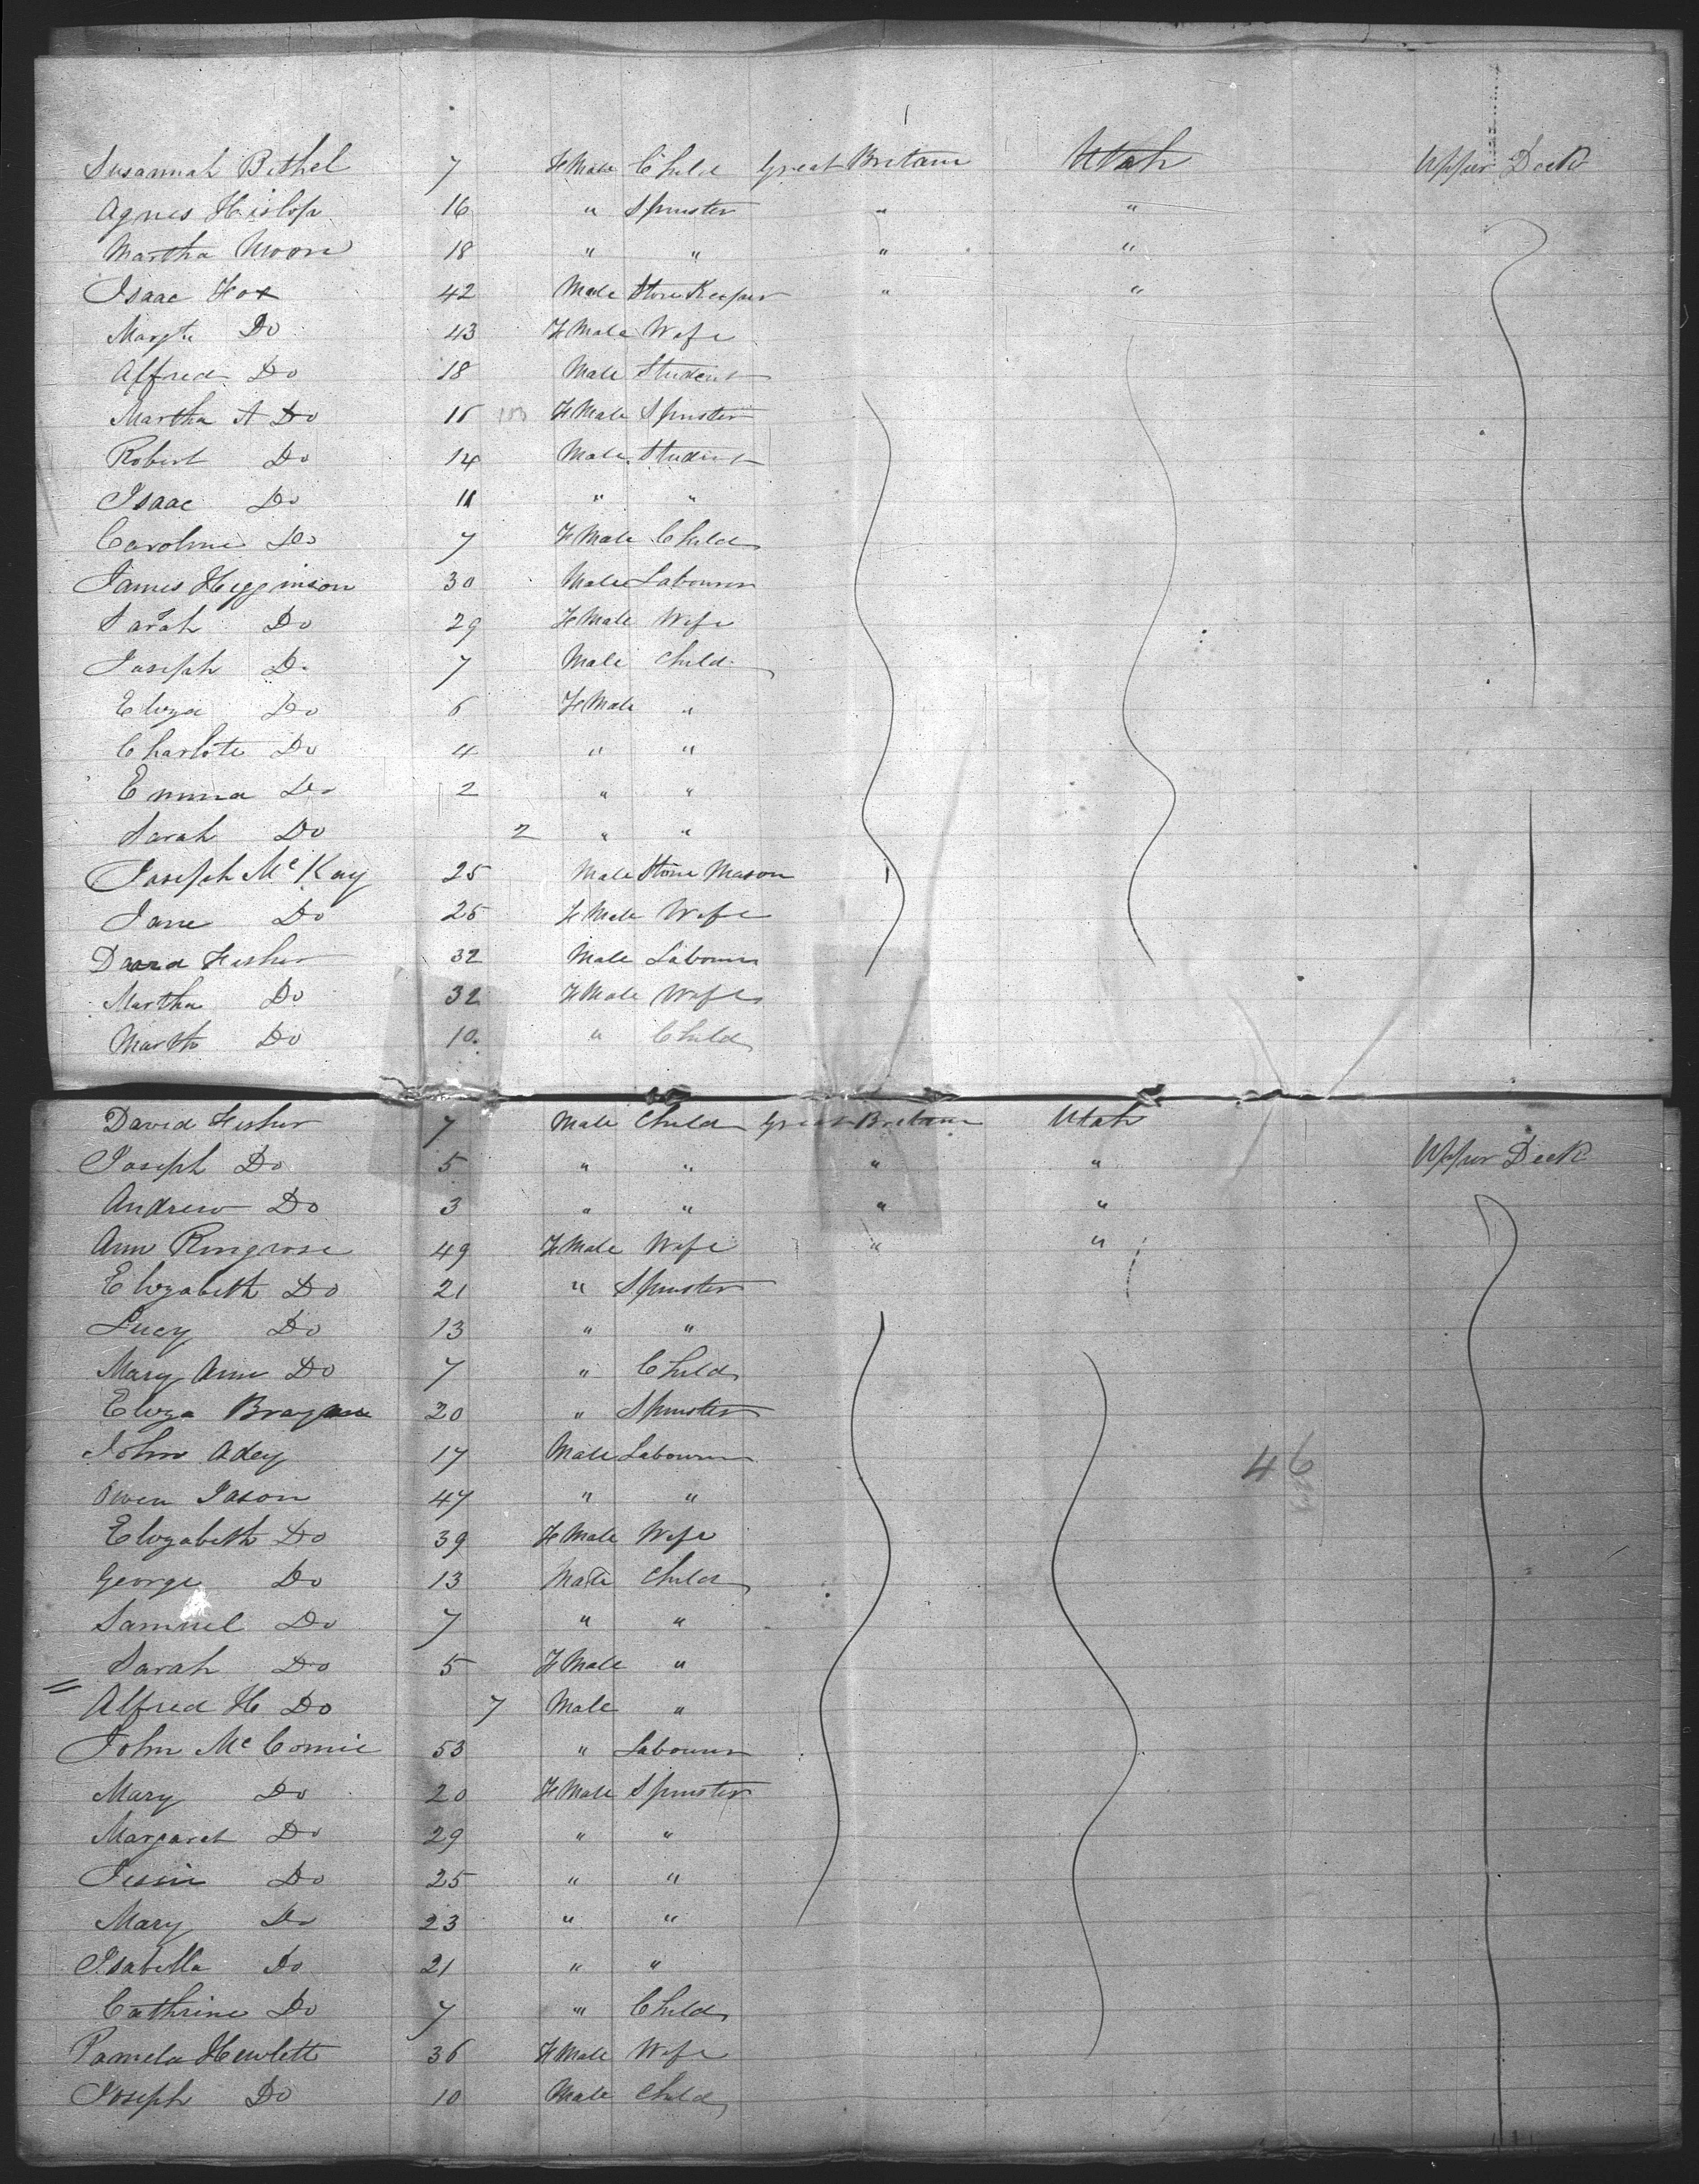 Susannah Bethel 7 FMale Child Great Britain Utah Upper Deck
Agnes Hislop 16 " Spinster " "
Martha Moore 18 " " " "
Isaac Fox 42 Male Store Keeper " "
Margte Do 43 FMale Wife
Alfred Do 18 Male Student
Martha A Do 16 FMale Spinster
Robert Do 14 Male Student
Isaac Do 11 " "
Caroline Do 7 FMale Child
James Higginson 30 Male Labourer
Sarah Do 29 FMale Wife
Joseph Do 7 Male Child
Eliza Do 6 FMale "
Charlote Do 4 " "
Emma Do 2 " "
Sarah Do 2 " "
Joseph McKay 25 Male Stone Mason
Jane Do 25 FMale Wife
David Fisher 32 Male Labourer
Martha Do 32 FMale Wife
Marth Do 10 " Child
David Fisher 7 Male Child Great Britain Utah
Joseph Do 5 " " " " Upper Deck
Andrew Do 3 " " " "
Ann Ringrose 49 FMale Wife " "
Elizabeth Do 21 " Spinster
Lucy Do 13 " "
Mary Ann Do 7 " Child
Eliza 20 " Spinster
John Adey 17 Male Labourer 46
Owen Jason 47 " "
Elizabeth Do 39 FMale Wife
George Do 13 Male Child
Samuel Do 7 " "
Sarah Do 5 FMale "
Alfred H Do 7 Male "
John McComie 53 " Labourer
Mary Do 20 FMale Spinster
Margaret Do 29 " "
Jessie Do 25 " "
Mary Do 23 " "
Isabella Do 21 " "
Cathrine Do 7 " Child
Pamela Hewlett 36 FMale Wife
Joseph Do 10 Male Child